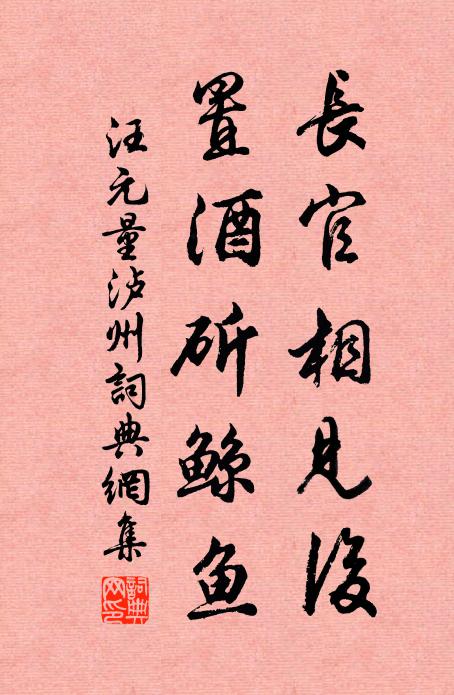 長官相見後
置酒斫鲸鱼
汪元量泸州詞典網集
詞典網印